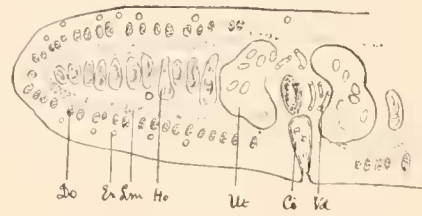 Do Ex Lm Ho Ut Ci Vd